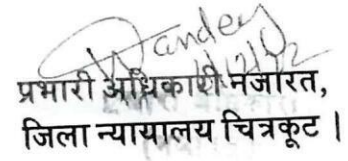 Pandey
प्रभारी अधिकारी नजारत,
जिला न्यायालय चित्रकूट |